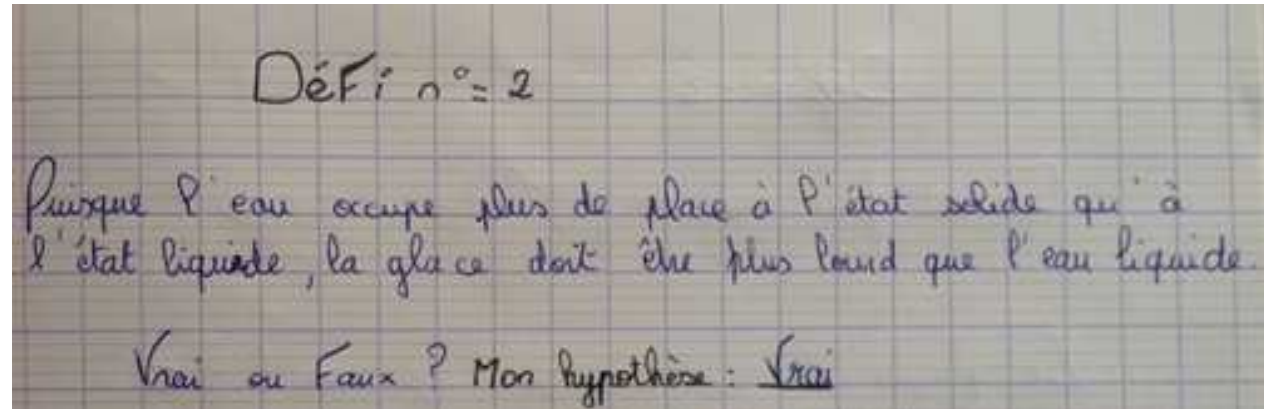 DéFi n°= 2
Puisque l'eau occupe plus de place à l'état solide qu'à
l'état liquide, la glace doit être plus lourd que l'eau liquide.
Vrai ou Faux ? Mon hypothèse : Vrai